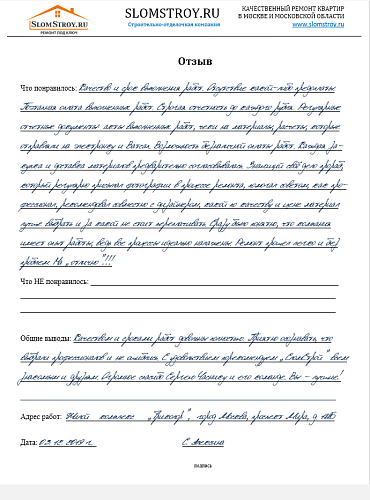 SLOMSTROY.RU
РЕМОНТ ПОД КЛЮЧ
SLOMSTROY.RU
Строительно-отделочная компания
КАЧЕСТВЕННЫЙ РЕМОНТ КВАРТИР
В МОСКВЕ И МОСКОВСКОЙ ОБЛАСТИ
www.slomstroy.ru
Отзыв
Что понравилось: Качество и срок выполнения работ. Отсутствие какой-либо предоплаты.
Поэтапная оплата выполненных работ. Строгая отчетность до каждого рубля. Регулярные
отчетные документы: акты выполненных работ, чеки на материалы, расчеты, которые
отправляли на электронку и Ватсап. Возможность безналичной оплаты работ. Каждая за-
купка и доставка материалов предварительно согласовывалась. Знающий своё дело прораб,
который регулярно присылал фотографии в процессе ремонта, помогал советом как про-
фессионал, рекомендовал совместно с дизайнером, какой по качеству и цене материал
лучше выбрать и за какой не стоит переплачивать. Сразу было понятно, что компания
имеет опыт работы, ведь все процессы идеально налажены. Ремонт прошел легко и без
проблем. На „отлично"!!!
Что НЕ понравилось:
Общие выводы: Качеством и сроками работ довольны полностью. Приятно осознавать, что
выбрали профессионалов и не ошиблись. С удовольствием порекомендуем „СломСтрой" всем
знакомым и друзьям. Огромное спасибо Сергею и его команде. Вы - лучшие!
Адрес работ: Жилой комплекс город Москва, проспект Мира, д.
Дата: 03.12.2019 г.
подпись